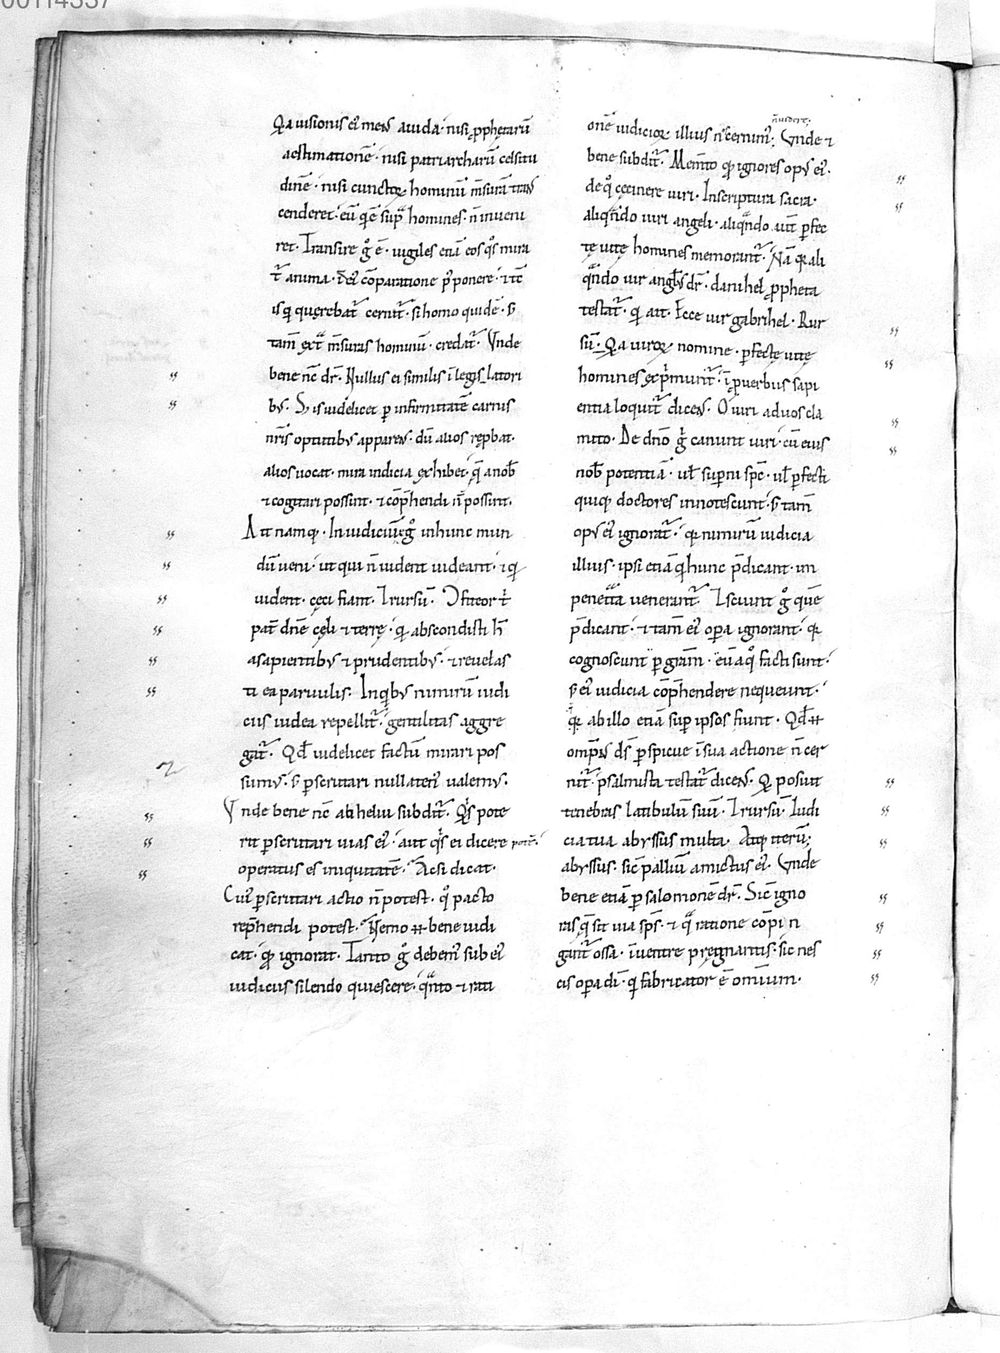 00114337
Qa uisionis ei᷒ mens auida· nisi ꝓphetarū
aestimationē· nisi patriarcharū celsitu
dinē· nisi cunctoꝝ hominū m̄surā trans
cenderet· eū quē sup̄ homines· n̄ inueni
ret. Transire g̊ ē· uigiles etiā eos q̊s mira
t᷑ anima· d̄ei comparatione p̄ponere· ⁊ tc̄
is q̨ querebat᷑ cernit᷑· si homo quidē· s;
tam̄ ext̄ m̄suras hominū· credat᷑. Vnde
bene nc̄ dr̄· Nullus ei similis ī legislatori
b᷒. Sꝫ is uidelicet ꝑ infirmitatē carnis
nr̄is optutib᷒ apparens· dū alios rep̱bat·
alios uocat· mira iudicia exhibet· q̄ a nob̄
⁊ cogitari possunt· ⁊ cōp̄hendi n̄ possunt.
Ait namq· In iudiciū eg̊ in hunc mun
dū ueni· ut qui n̄ uident uideant· ⁊ q̨
uident· ceci fiant. Irursū· Ɔfiteor t᷑
pat̄ dn̄e celi ⁊ terre· q̨ abscondisti h̄
a sapientib᷒ ⁊ prudentib᷒· ⁊ reuelas
ti ea paruulis. In qb᷒ nimirū iudi
ciis iudea repellit᷑· gentilitas aggre
gat᷑. Qd̄ uidelicet factū mirari pos
sum᷒· s; ꝑscrutari nullaten᷒ ualem᷒.
Vnde bene nc̄ ab heliu subdit᷑. Qs pote
rit ꝑscrutari uias ei᷒· aut q̊s ei dicere potē·
operatus es iniquitatē· Acsi dicat·
Cui᷒ ꝑscrutari actio n̄ potest· q̊ pacto
rep̄hendi potest. Nemo ⁊ bene iudi
cat· q̨ ignorat. Tanto g̊ debem᷒ sub ei᷒
iudiciis silendo quiescere· q̄nto ⁊ rati
n̄ uidert;
onē iudicioꝝ illius n̄ cernim᷒. Vnde ⁊
bene subdit᷑. Mem̄to q̨ ignores op᷒ ei᷒·
de q̊ cecinere uiri· In scriptura sacra·
aliq̄ndo uiri angeli· aliq̄ndo uite ꝑfec
te uite homines memorant᷑. Nā q̨ ali
q̄ndo uir angls dr̄· danihel ꝓpheta
testat᷑· q̨ ait· Ecce uir gabrihel· Rur
sū· Qa uiroꝝ nomine· ꝑfecte uite
homines exp̄munt᷑· ī ꝓuerbiis sapi
entia loquit᷑ dicens. O uiri ad uos cla
mito· De dn̄o g̊ canunt uiri· cū eius
nob̄ potentiā· ul̄ sup̱ni spc̄· ul̄ ꝑfecti
quiq̨ doctores innotescunt· s; tam̄
op᷒ ei᷒ ignorat᷑· q̨ nimirū iudicia
illius· ipsi etiā q̨ hunc p̄dicant· im
penet̄ta uenerant᷑ Isciunt g̊ quē
p̄dicant· ⁊ tam̄ ei᷒ opa ignorant· q̨
cognoscunt ꝑ gr̄am· eū a q̊ facti sunt·
s; ei᷒ iudicia cōp̄hendere nequeunt·
q̄ ab illo etiā sup̱ ipsos fiunt· Qd̄ ⁊
omp̄s ds̄ ꝑspicue ī sua actione n̄ cer
nit᷑· psalmista testat᷑ dicens. Q̨ posuit
tenebras latibulū suū. Irursū· Iudi
cia tua abyssus multa. Atq̨ iterū·
abyssus· sic̄ palliū amictus ei᷒. Vnde
bene etiā ꝑ salomonē dr̄· Sic̄ igno
ras q̄ sit uia sps̄· ⁊ q̄ ratione cōpin
gant᷑ ossa· ī uentre pregnantis· sic nes
cis opa di᷒· q̨ fabricator ē omnium·